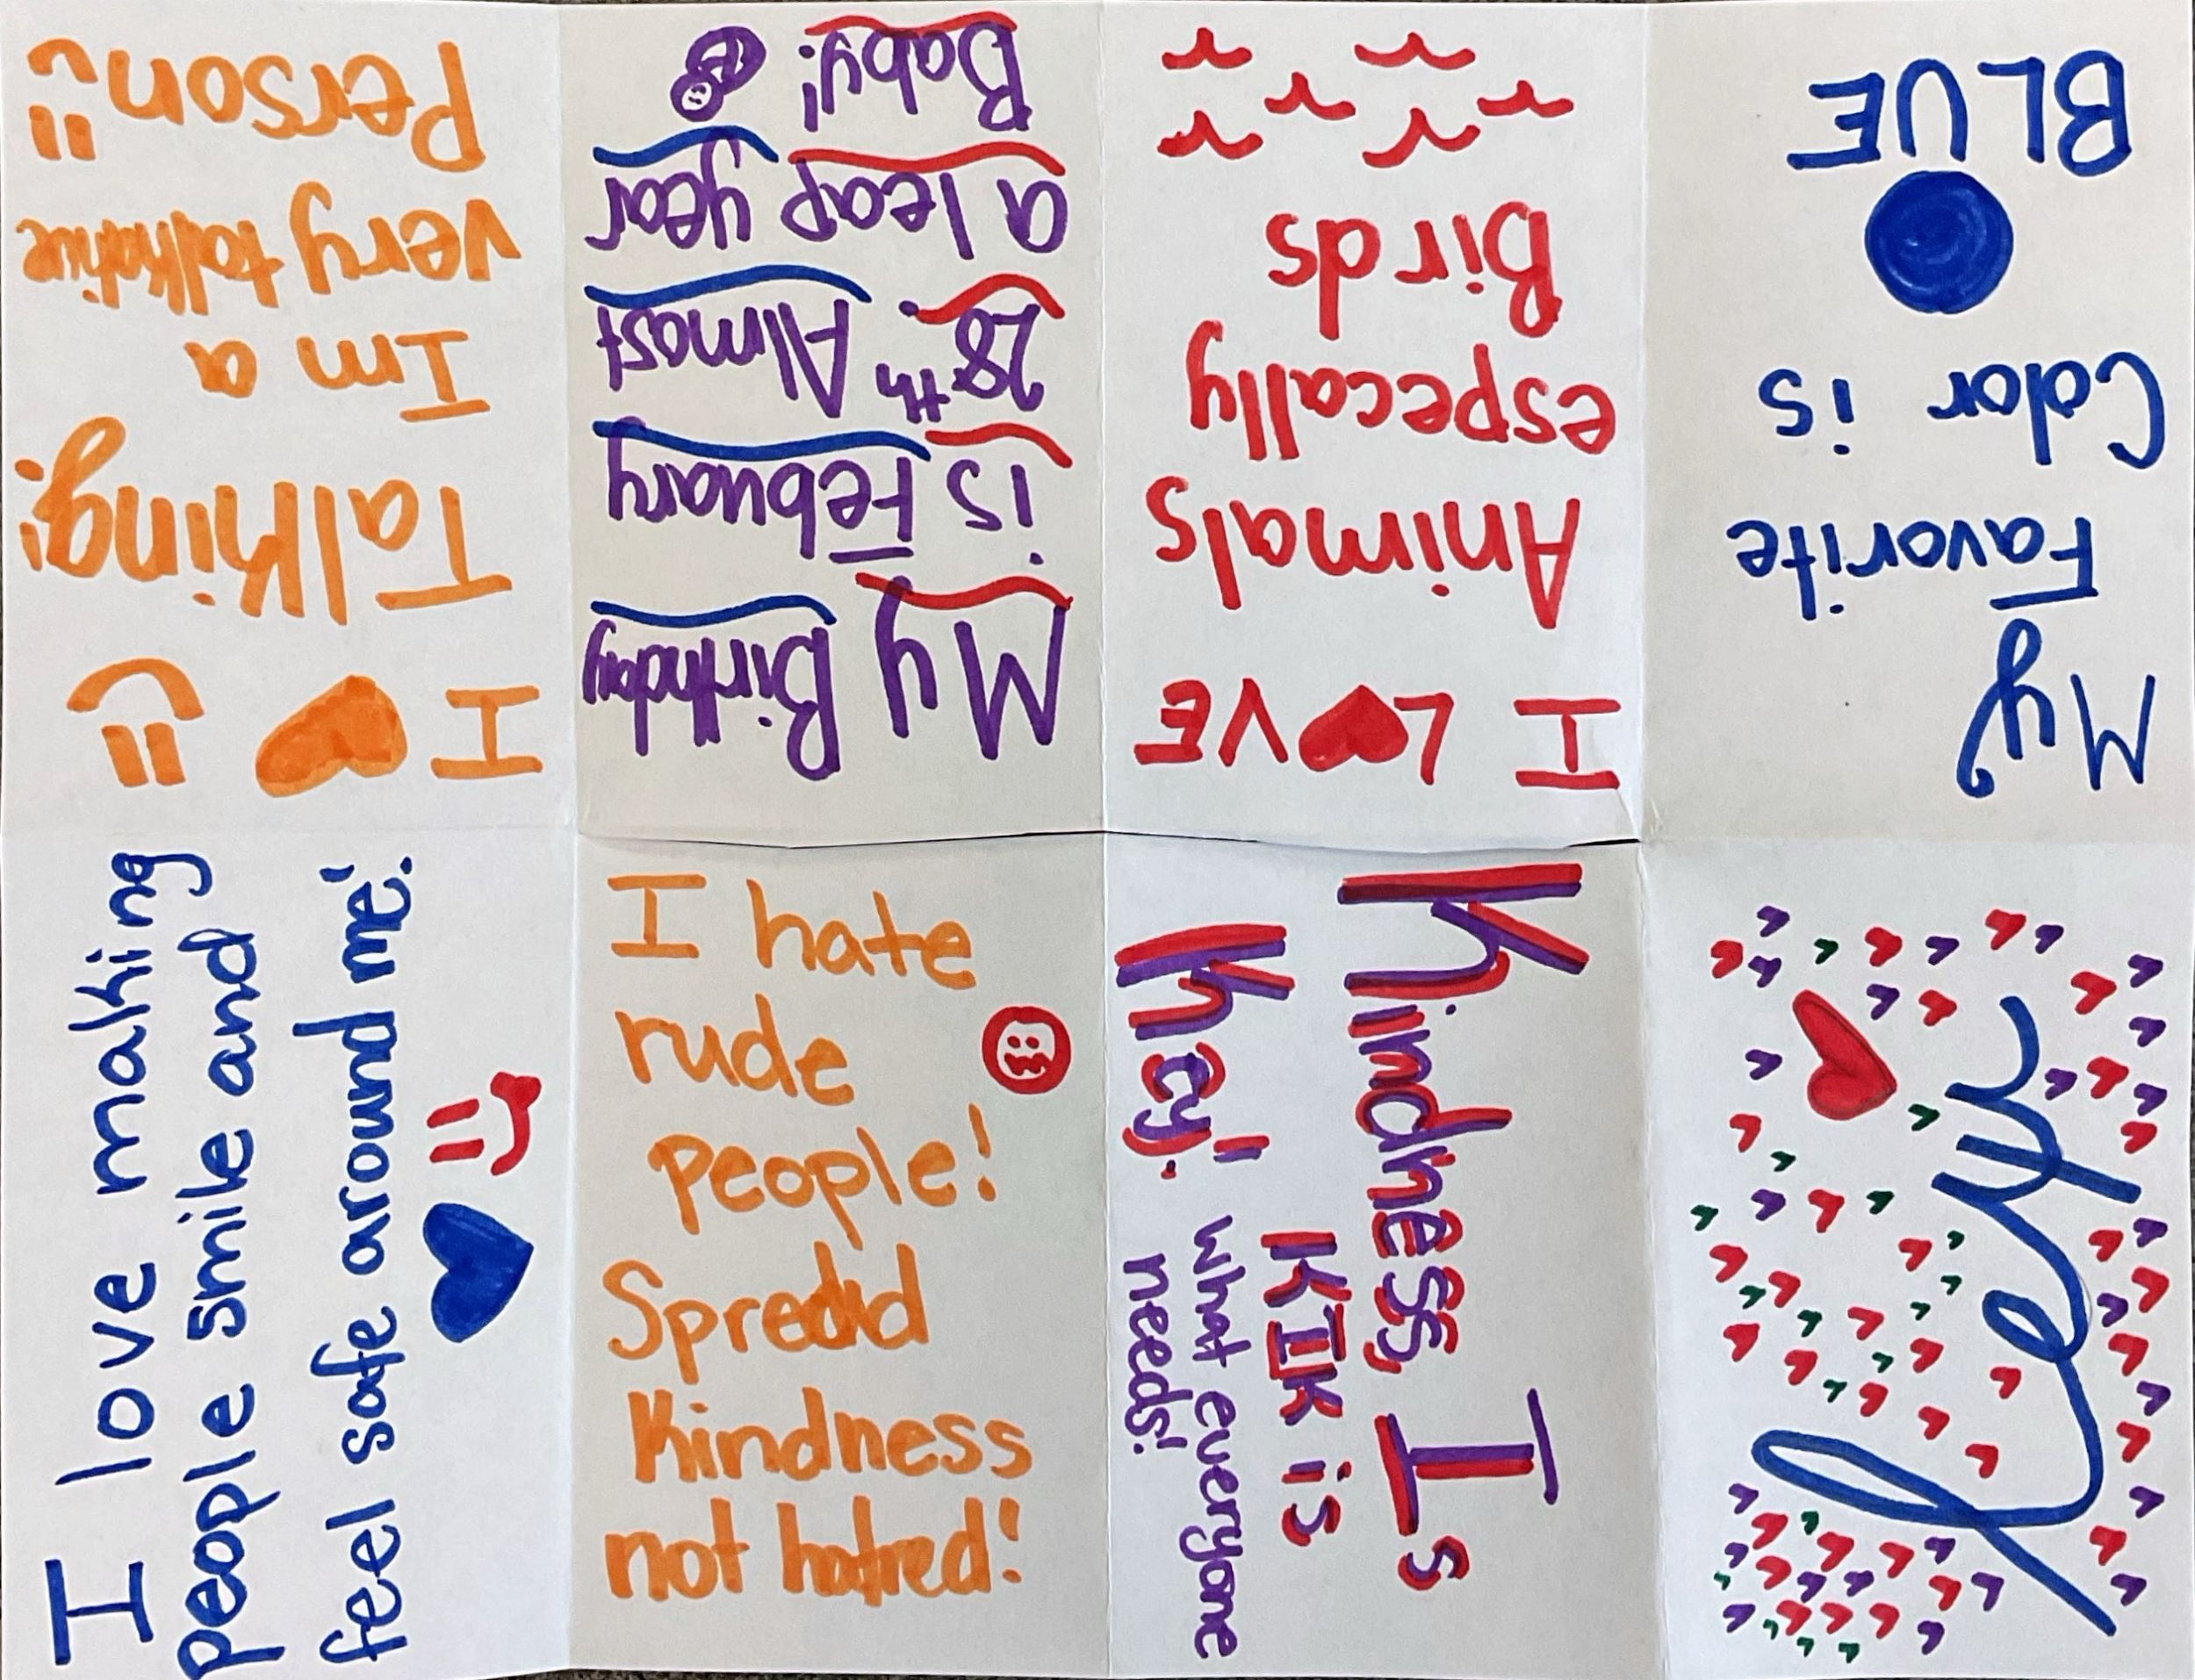 My
Favorite
Color is
BLUE
I LOVE
Animals
especally
Birds
My Birthday
is Febuary
28th Almost
a leap year
Baby!
I
Talking!
Im a
very talkative
Person
I love making
people smile and
feel safe around me!
I hate
rude
people!
Spread
Kindness
not hatred!
Kindness Is
Key!
KIK is
what everyone
needs!